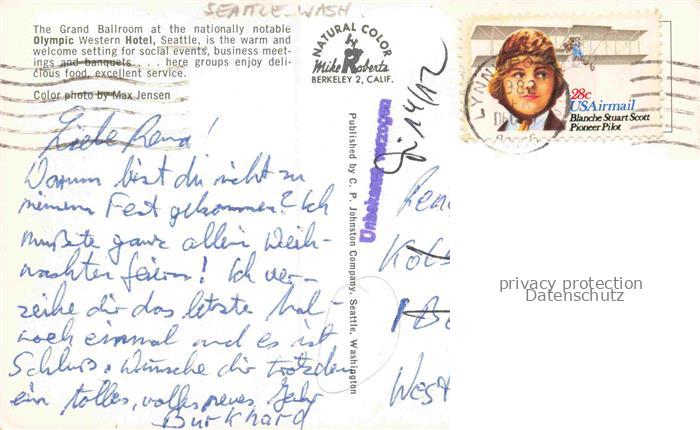 SEATTLE WASH
The Grand Ballroom at the nationally notable
Olympic Western Hotel, Seattle, is the warm and
welcome setting for social events, business meet-
ings and banquets . . . here groups enjoy deli-
cious food, excellent service.
Color photo by Max Jensen
NATURAL COLOR
Mike Roberts
BERKELEY 2, CALIF.
Liebe Rena!
Warum bist du nicht zu
meinem Fest gekommen? Ich
mußte ganz allein Weih-
nachten feiern! Ich ver-
zeihe dir das letzte Mal
noch einmal und es ist
Schluß. Wünsche dir trotzdem
ein tolles, volles neues Jahr
Burkhard
Published by C. P. Johnston Company, Seattle, Washington
Unbekannt verzogen
14/12
LYNN
28c
USAirmail
Blanche Stuart Scott
Pioneer Pilot
Rena
West
privacy protection
Datenschutz